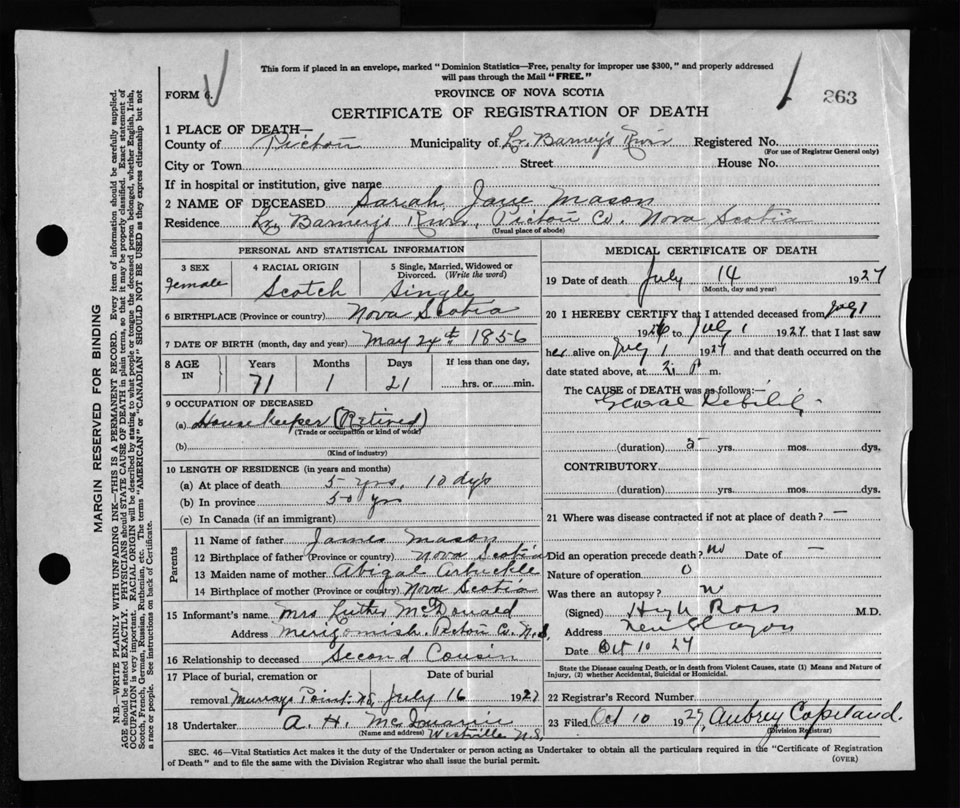 This form if placed in an envelope, marked "Dominion Statistics—Free, penalty for improper use $300," and properly addressed
will pass through the Mail "FREE."
FORM 6.
PROVINCE OF NOVA SCOTIA
263
CERTIFICATE OF REGISTRATION OF DEATH
1 PLACE OF DEATH—
County of Pictou Municipality of Lr. Barney's River Registered No.
(For use of Registrar General only)
City or Town Street House No.
If in hospital or institution, give name
2 NAME OF DECEASED Sarah Jane Mason
Residence Lr. Barney's River, Pictou Co. Nova Scotia
(Usual place of abode)
PERSONAL AND STATISTICAL INFORMATION
3 SEX
Female
4 RACIAL ORIGIN
Scotch
5 Single, Married, Widowed or
Divorced. (Write the word)
Single
6 BIRTHPLACE (Province or country) Nova Scotia
7 DATE OF BIRTH (month, day and year) May 24th 1856
8 AGE
IN
Years Months Days If less than one day,
71 1 21 hrs. or min.
9 OCCUPATION OF DECEASED
(a) Housekeeper (Retired)
(Trade or occupation or kind of work)
(b)
(Kind of industry)
10 LENGTH OF RESIDENCE (in years and months)
(a) At place of death 5 yrs, 10 dys
(b) In province 50 yrs
(c) In Canada (if an immigrant)
Parents
11 Name of father James Mason
12 Birthplace of father (Province or country) Nova Scotia
13 Maiden name of mother Abigal Arbuckle
14 Birthplace of mother (Province or country) Nova Scotia
15 Informant's name Mrs Luther McDonald
Address Merigomish. Pictou Co. N.S.
16 Relationship to deceased Second Cousin
17 Place of burial, cremation or Date of burial
removal Murrays Point. N.S. July 16 1927
18 Undertaker A. H. McQuarrie
(Name and address) Westville N.S.
MEDICAL CERTIFICATE OF DEATH
19 Date of death July 14 1927
(Month, day and year)
20 I HEREBY CERTIFY that I attended deceased from July 1
192 to July 1 1927 that I last saw
her alive on July 1 1927 and that death occurred on
the date stated above, at 2 P m.
The CAUSE of DEATH was as follows:
General Debility
(duration) 2 yrs. mos. dys.
CONTRIBUTORY
(duration) yrs. mos. dys.
21 Where was disease contracted if not at place of death? —
Did an operation precede death? no Date of —
Nature of operation 0
Was there an autopsy? no
(Signed) Hugh Ross M.D.
Address New Glasgow
Date Oct 10 27
State the Disease causing Death, or in death from Violent Causes, state (1) Means and Nature of
Injury, (2) whether Accidental, Suicidal or Homicidal.
22 Registrar's Record Number
23 Filed Oct 10 1927, Aubrey Copeland.
(Division Registrar)
SEC. 46—Vital Statistics Act makes it the duty of the Undertaker or person acting as Undertaker to obtain all the particulars required in the "Certificate of Registration
of Death" and to file the same with the Division Registrar who shall issue the burial permit.
(OVER)
MARGIN RESERVED FOR BINDING
N.B.—WRITE PLAINLY, WITH UNFADING INK—THIS IS A PERMANENT RECORD. Every item of information should be carefully supplied.
AGE should be stated EXACTLY. PHYSICIANS should STATE CAUSE OF DEATH in plain terms, so that it may be properly classified. Exact statement of
OCCUPATION is very important. RACIAL ORIGIN will be described by stating to what people or tongue the deceased person belonged, whether English, Irish,
Scotch, French, German, Russian, Ruthenian, etc. The terms "AMERICAN" or "CANADIAN" SHOULD NOT BE USED as they express citizenship but not
a race or people. See instructions on back of Certificate.